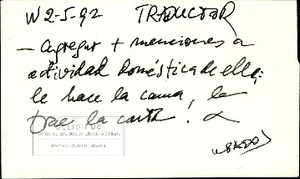 W 2-5-92 TRADUCTOR
— Agregar + menciones a
actividad doméstica de ella:
le hace la cama, le
trae la carta.